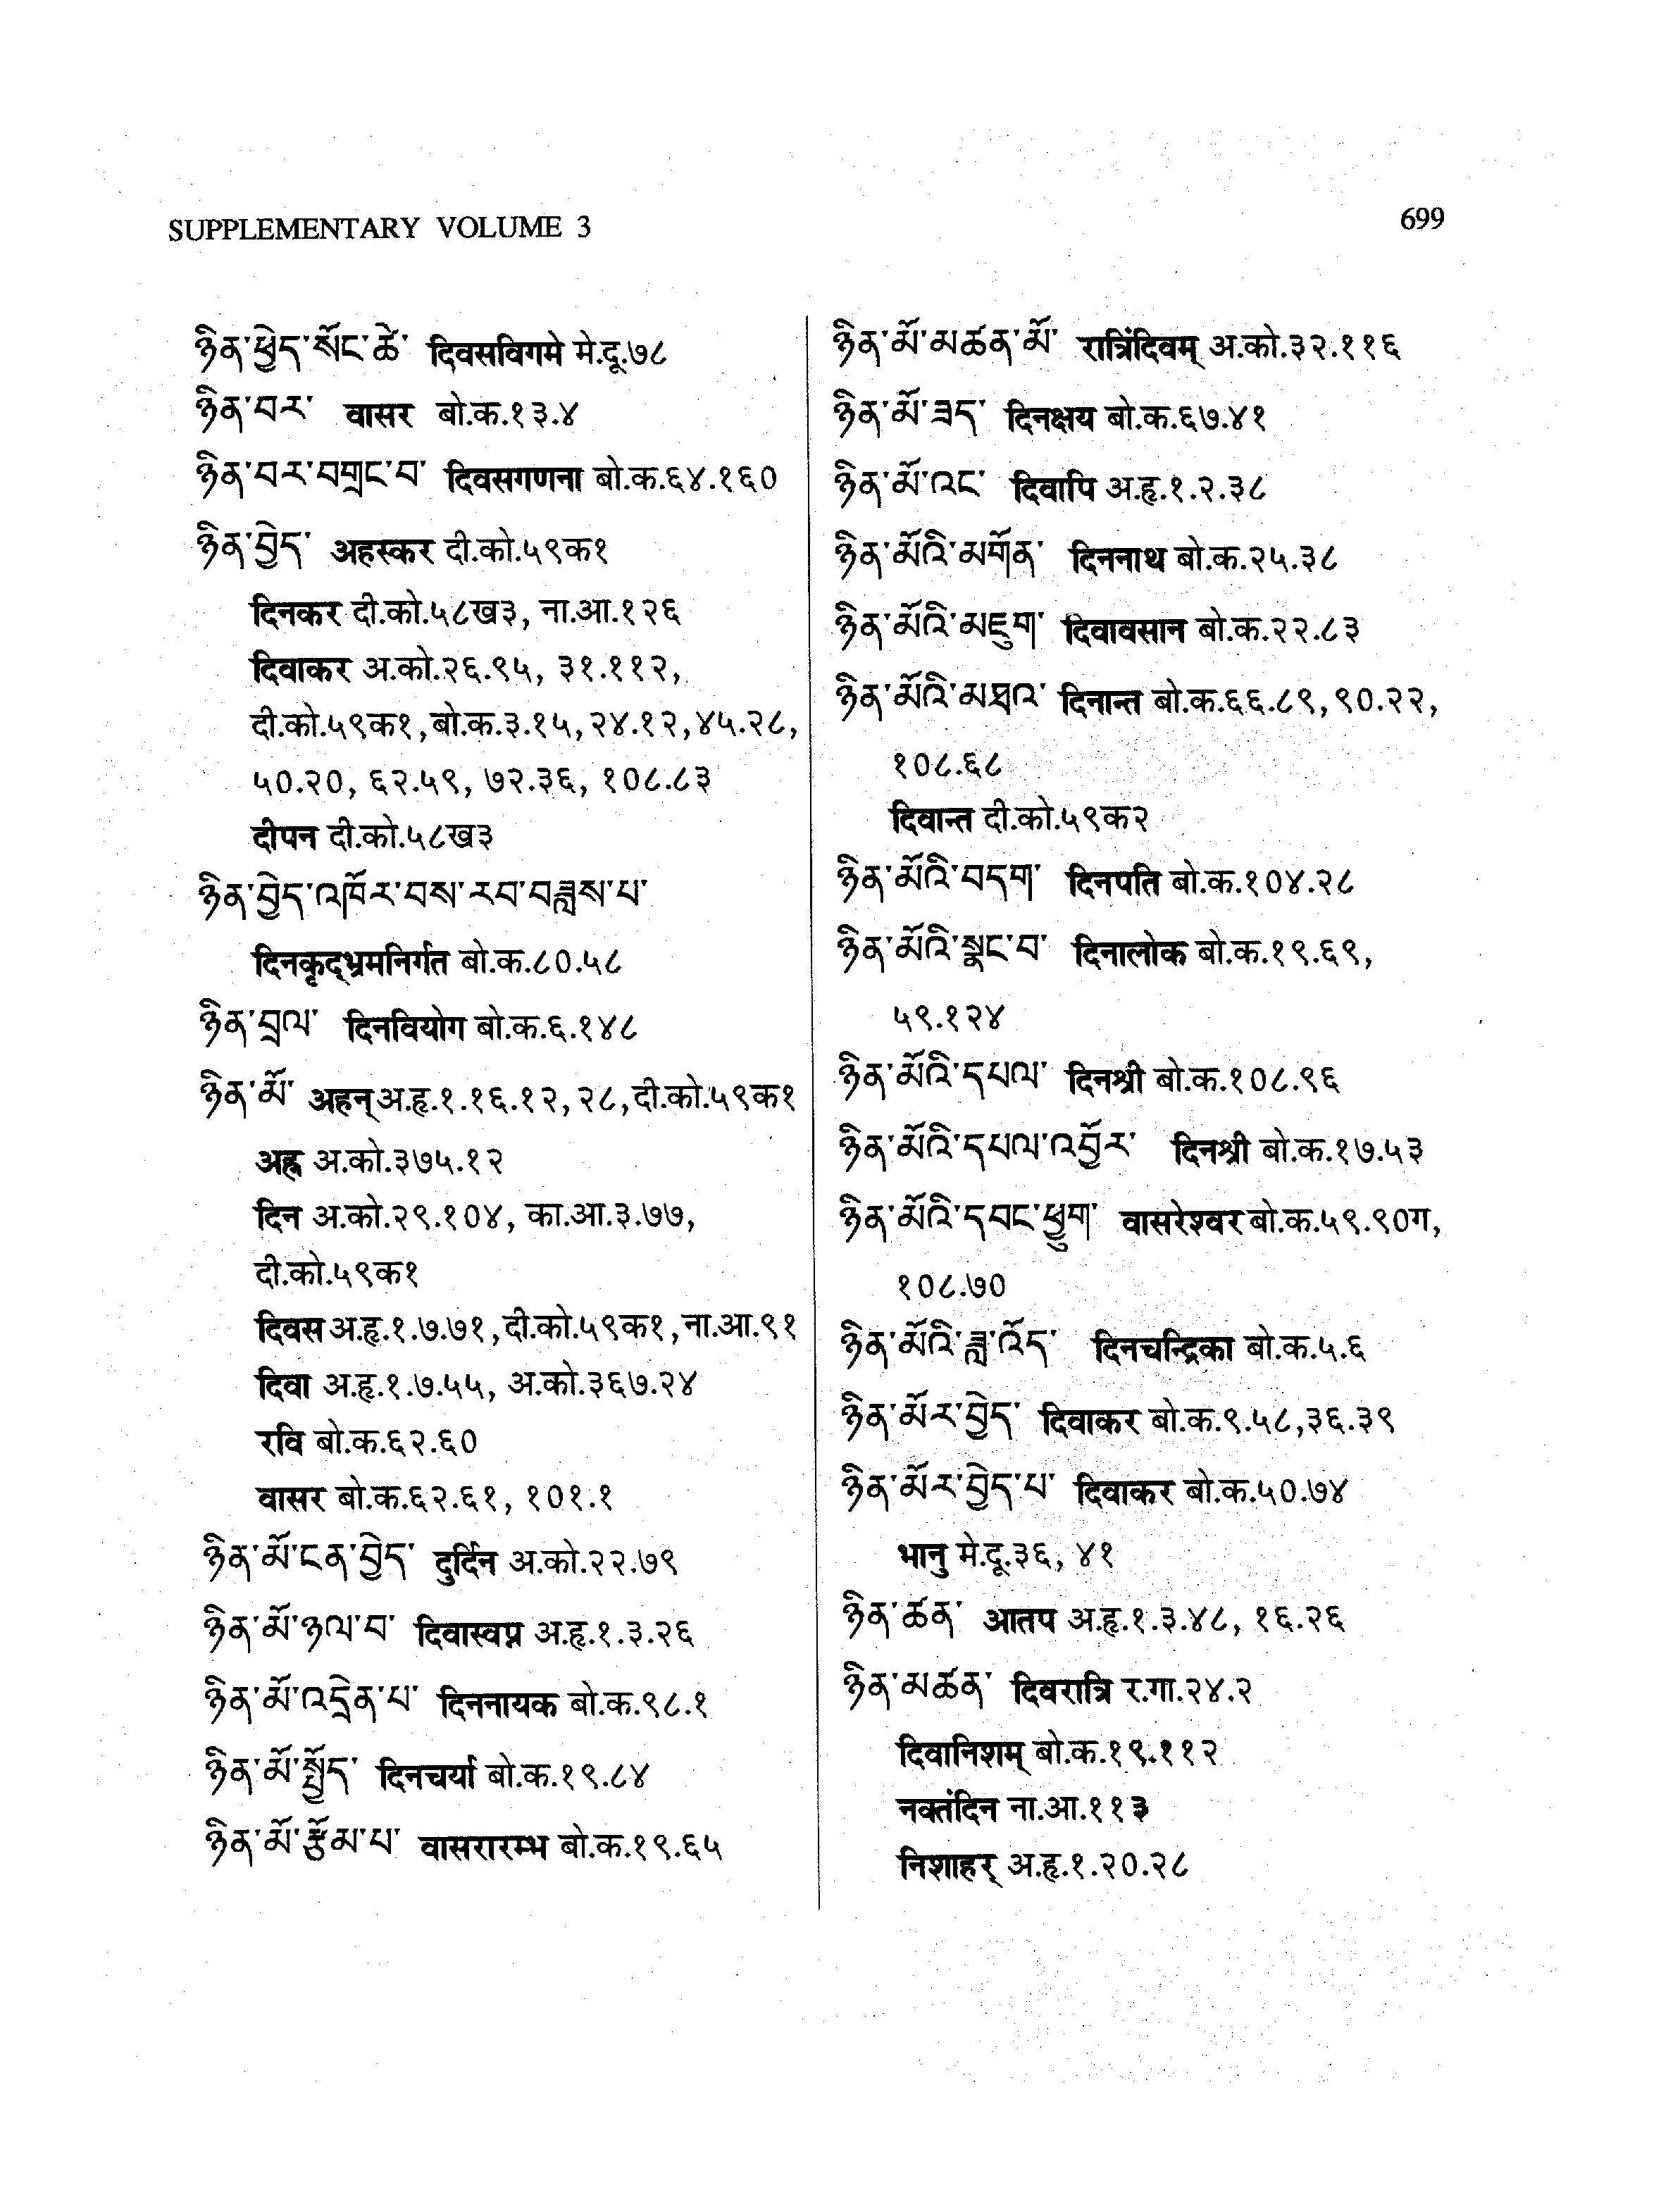 SUPPLEMENTARY VOLUME 3
699
ཉིན་ཕྱེད་སོང་ཚེ་ दिवसविगमे मे.दू.७८
ཉིན་བར་ वासर बो.क.१३.४
ཉིན་བར་བགྲང་བ་ दिवसगणना बो.क.६४.१६०
ཉིན་བྱེད་ अहस्कर दी.को.५९क१
दिनकर दी.को.५८ख३, ना.आ.१२६
दिवाकर अ.को.२६.९५, ३१.११२,
दी.को.५९क१,बो.क.३.१५,२४.१२,४५.२८,
५०.२०, ६२.५९, ७२.३६, १०८.८३
दीपन दी.को.५८ख३
ཉིན་བྱེད་འཁོར་བས་རབ་བཟླས་པ་
दिनकृद्भ्रमनिर्गत बो.क.८०.५८
ཉིན་བྲལ་ दिनवियोग बो.क.६.१४८
ཉིན་མོ་ अहन् अ.हृ.१.१६.१२,२८,दी.को.५९क१
अह्न अ.को.३७५.१२
दिन अ.को.२९.१०४, का.आ.३.७७,
दी.को.५९क१
दिवस अ.हृ.१.७.७१,दी.को.५९क१,ना.आ.९१
दिवा अ.हृ.१.७.५५, अ.को.३६७.२४
रवि बो.क.६२.६०
वासर बो.क.६२.६१, १०१.१
ཉིན་མོ་ངན་བྱེད་ दुर्दिन अ.को.२२.७९
ཉིན་མོ་ཉལ་བ་ दिवास्वप्न अ.हृ.१.३.२६
ཉིན་མོ་འདྲེན་པ་ दिननायक बो.क.९८.१
ཉིན་མོ་སྤྱོད་ दिनचर्या बो.क.१९.८४
ཉིན་མོ་རྩོམ་པ་ वासरारम्भ बो.क.१९.६५
ཉིན་མོ་མཚན་མོ་ रात्रिंदिवम् अ.को.३२.११६
ཉིན་མོ་ཟད་ दिनक्षय बो.क.६७.४१
ཉིན་མོ་འང་ दिवापि अ.हृ.१.२.३८
ཉིན་མོའི་མགོན་ दिननाथ बो.क.२५.३८
ཉིན་མོའི་མཇུག་ दिवावसान बो.क.२२.८३
ཉིན་མོའི་མཐའ་ दिनान्त बो.क.६६.८९,९०.२२,
१०८.६८
दिवान्त दी.को.५९क२
ཉིན་མོའི་བདག་ दिनपति बो.क.१०४.२८
ཉིན་མོའི་སྣང་བ་ दिनालोक बो.क.१९.६९,
५९.१२४
ཉིན་མོའི་དཔལ་ दिनश्री बो.क.१०८.९६
ཉིན་མོའི་དཔལ་འབྱོར་ दिनश्री बो.क.१७.५३
ཉིན་མོའི་དབང་ཕྱུག་ वासरेश्वर बो.क.५९.९०ग,
१०८.७०
ཉིན་མོའི་ཟླ་འོད་ दिनचन्द्रिका बो.क.५.६
ཉིན་མོར་བྱེད་ दिवाकर बो.क.९.५८,३६.३९
ཉིན་མོར་བྱེད་པ་ दिवाकर बो.क.५०.७४
भानु मे.दू.३६, ४१
ཉིན་ཚན་ आतप अ.हृ.१.३.४८, १६.२६
ཉིན་མཚན་ दिवरात्रि र.गा.२४.२
दिवानिशम् बो.क.१९.११२
नक्तंदिन ना.आ.११३
निशाहर् अ.हृ.१.२०.२८